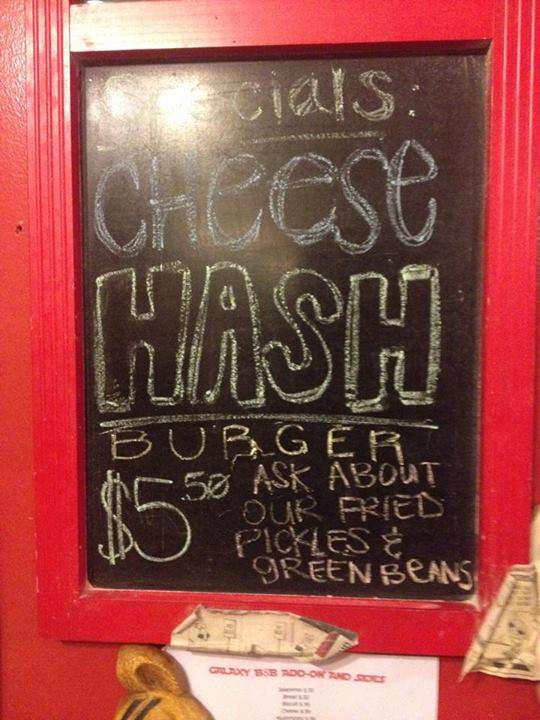 Specials:
CHeeSe
HASH
BURGER
$5.50 ASK ABOUT
OUR FRIED
PICKLES &
GREEN BEANS
GALAXY B&B ADD-ON AND SIDES